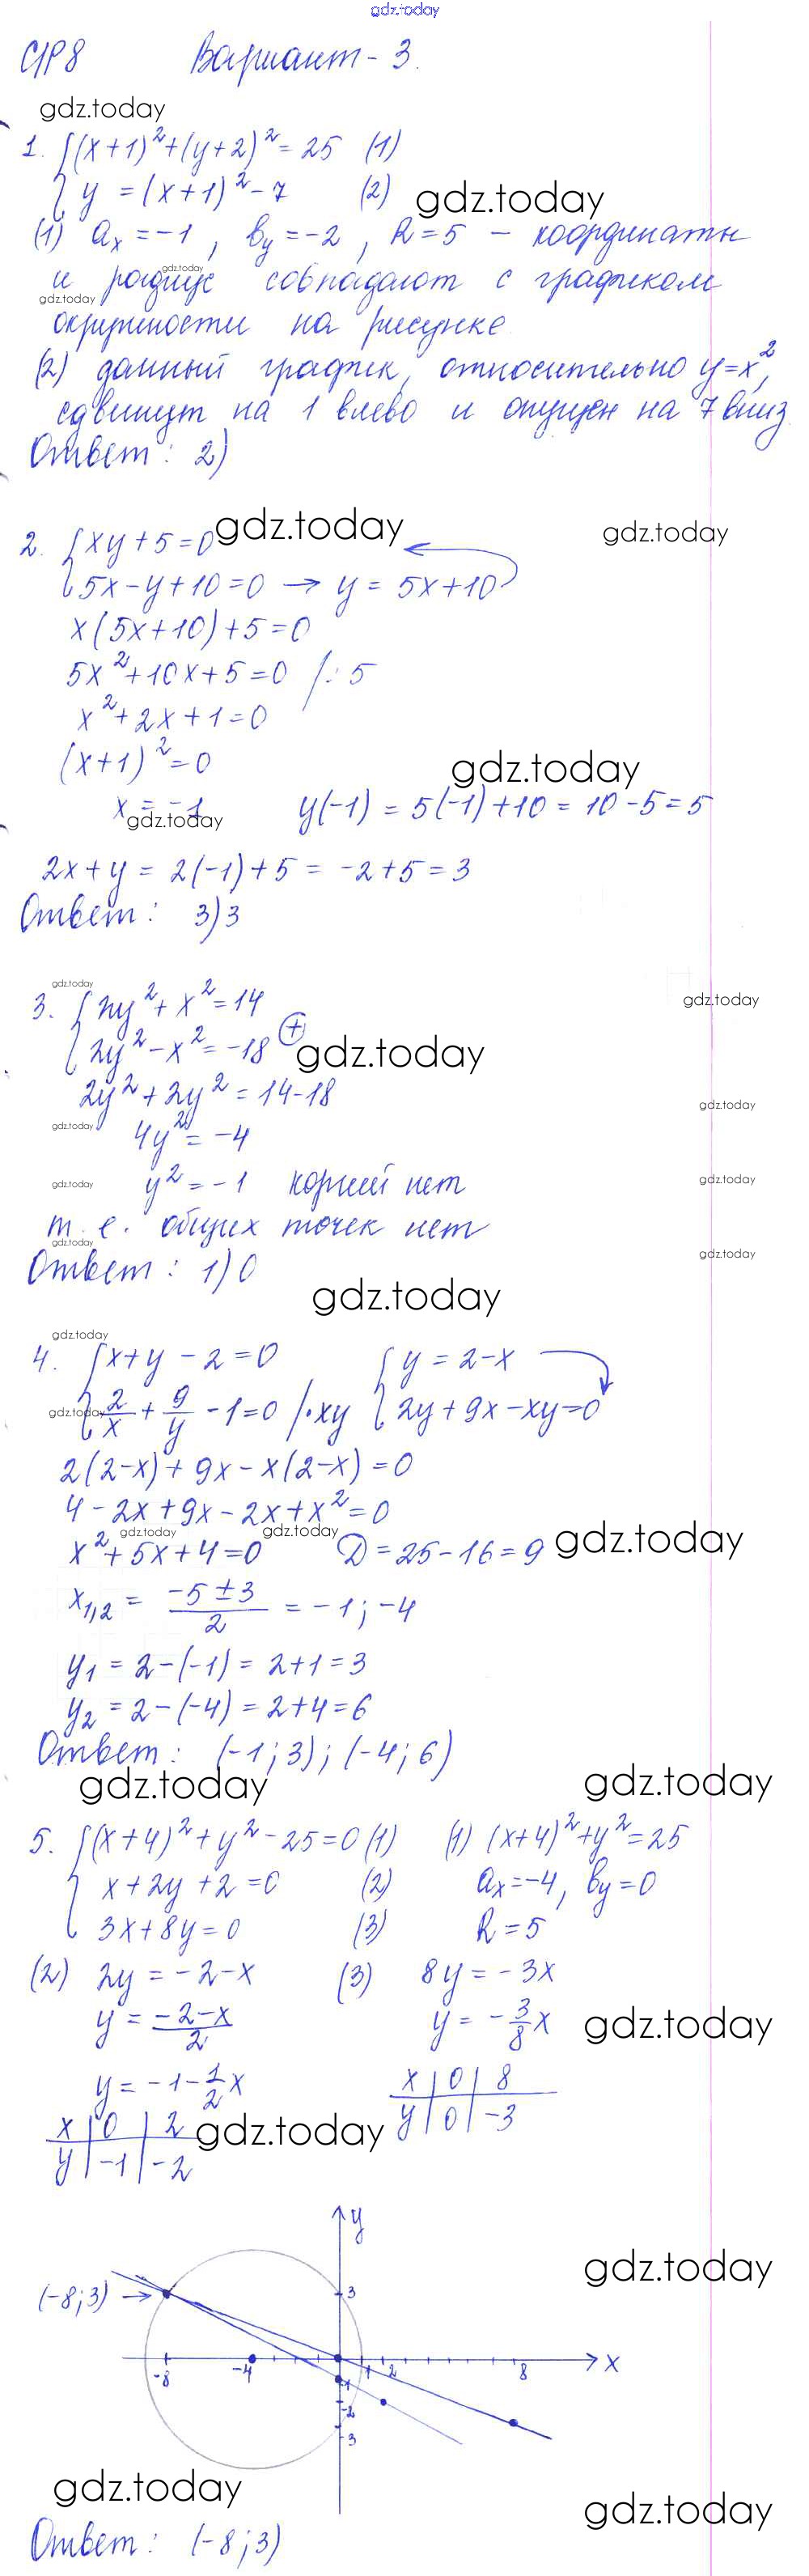 gdz.today
СР8 Вариант - 3.
gdz.today
1. {(x+1)²+(y+2)²=25 (1)
{y =(x+1)²-7 (2) gdz.today
(1) aₓ=-1, в_y=-2, R=5 - координаты
gdz.today
и радиус совпадают с графиком
gdz.today
окружности на рисунке
(2) данный график, относительно y=x²,
сдвинут на 1 влево и опущен на 7 вниз
Ответ: 2)
2. {xy+5=0 gdz.today gdz.today
{5x-y+10=0 → y = 5x+10
x(5x+10)+5=0
5x²+10x+5=0 /:5
x²+2x+1=0
(x+1)²=0 gdz.today
x=-1 y(-1) = 5(-1)+10 = 10-5=5
gdz.today
2x+y = 2(-1)+5 = -2+5=3
Ответ: 3)3
gdz.today
3. {2y²+x²=14 gdz.today
{2y²-x²=-18 (+) gdz.today
2y²+2y²=14-18 gdz.today
gdz.today 4y²=-4
gdz.today y²=-1 корней нет gdz.today
т. е. общих точек нет
gdz.today gdz.today
Ответ: 1)0
gdz.today
gdz.today
4. {x+y-2=0 {y=2-x
gdz.today {2/x + 9/y - 1=0 /·xy {2y+9x-xy=0
2(2-x)+9x-x(2-x)=0
4-2x+9x-2x+x²=0
gdz.today gdz.today
x²+5x+4=0 D=25-16=9 gdz.today
x₁,₂ = (-5±3)/2 = -1; -4
y₁ = 2-(-1) = 2+1=3
y₂ = 2-(-4) = 2+4=6
Ответ: (-1; 3); (-4; 6)
gdz.today gdz.today
5. {(x+4)²+y²-25=0 (1) (1) (x+4)²+y²=25
{x+2y+2=0 (2) aₓ=-4, в_y=0
{3x+8y=0 (3) R=5
(2) 2y = -2-x (3) 8y=-3x
y = (-2-x)/2 y = -3/8x gdz.today
y = -1-1/2x x | 0 | 8
y | 0 | -3
x | 0 | 2 gdz.today
y | -1 | -2
y
gdz.today
(-8;3) → 3
-8 -4 1 2 8 x
-1
-2
3
gdz.today gdz.today
Ответ: (-8;3)